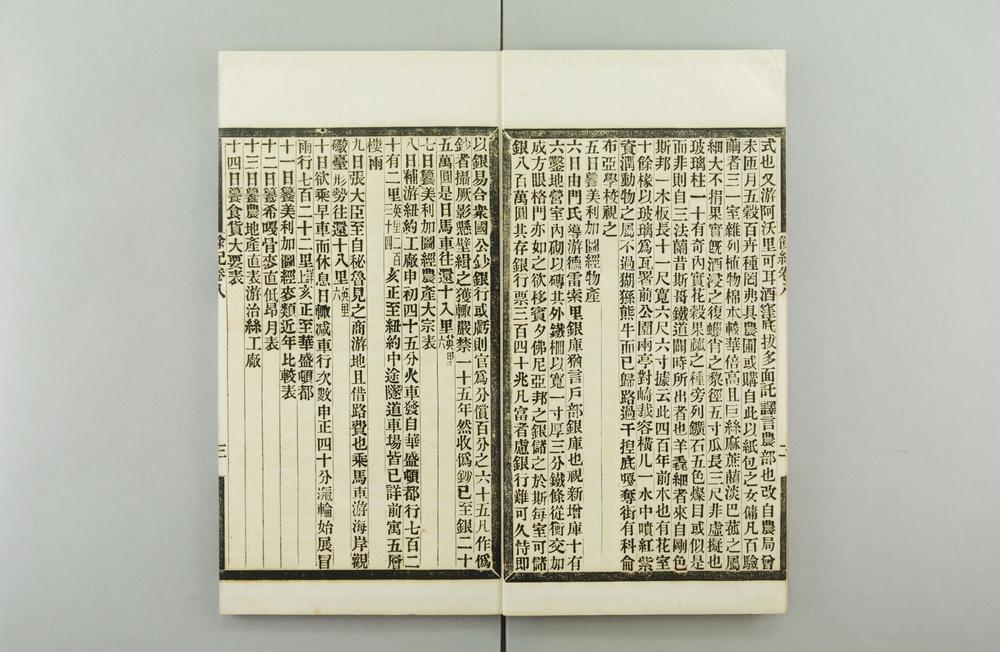 式也又游阿沃里可耳酒窪底拔多面託譯言農部也改自農局曾
未匝月五穀百卉種罔弗具農圃或購自此以紙包之女傭凡百驗
繭者三一室雜列植物棉本較華倍高且巨絲麻蔗藺淡巴菰之屬
細大不捐果實旣酒浸之復蠟肖之藜徑五寸瓜長三尺非虛擬也
玻璃柱一十有奇內實花穀果蓏之種旁列鑛石五色燦目或似是
而非則自三法蘭昔斯哥鐵道闢時所出者也羊毳細者來自剛色
斯邦一木板長十一尺寬六尺六寸據云此四百年前木也有花室
十餘椽以玻璃爲瓦署前公園兩亭對峙裁容橫几一水中噴紅紫
資潤動物之屬不過猢猻熊牛而已歸路過干揑底嘎奪街有科侖
布亞學校視之
五日纂美利加圖經物產
六日由門氏導游德雷索里銀庫猶言戶部銀庫也視新增庫十有
六鑿地營室內砌以磚其外鐵柵以寬一寸厚三分鐵條從衡交加
成方眼格門亦如之欲移賓夕佛尼亞邦之銀儲之於斯每室可儲
銀八百萬圓其存銀行票三百四十兆凡富者慮銀行難可久恃即
以銀易合衆國公鈔銀行或虧則官爲分償百分之六十五凡作僞
鈔者攝厥影懸壁紺之獲輒嚴禁一十五年然收僞鈔已至銀二十
五萬圓是日馬車往還十入里六英里
七日纂美利加圖經農產大宗表
八日補游紐約工廠申初四十五分火車發自華盛頓都行七百二
十有二里英里二百三十四亥正至紐約中途隧道車場皆已詳前寓五層
樓雨
九日張大臣至自秘魯見之商游地且借路費也乘馬車游海岸觀
礮臺形勢往還十八里六英里
十日欲乘早車而休息日輒減車行次數申正四十分滊輪始展冒
雨行七百二十二里詳前亥正至華盛頓都
十一日纂美利加圖經麥類近年比較表
十二日纂希嘎骨麥直低昂月表
十三日纂農地產直表游治絲工廠
十四日纂食貨大要表